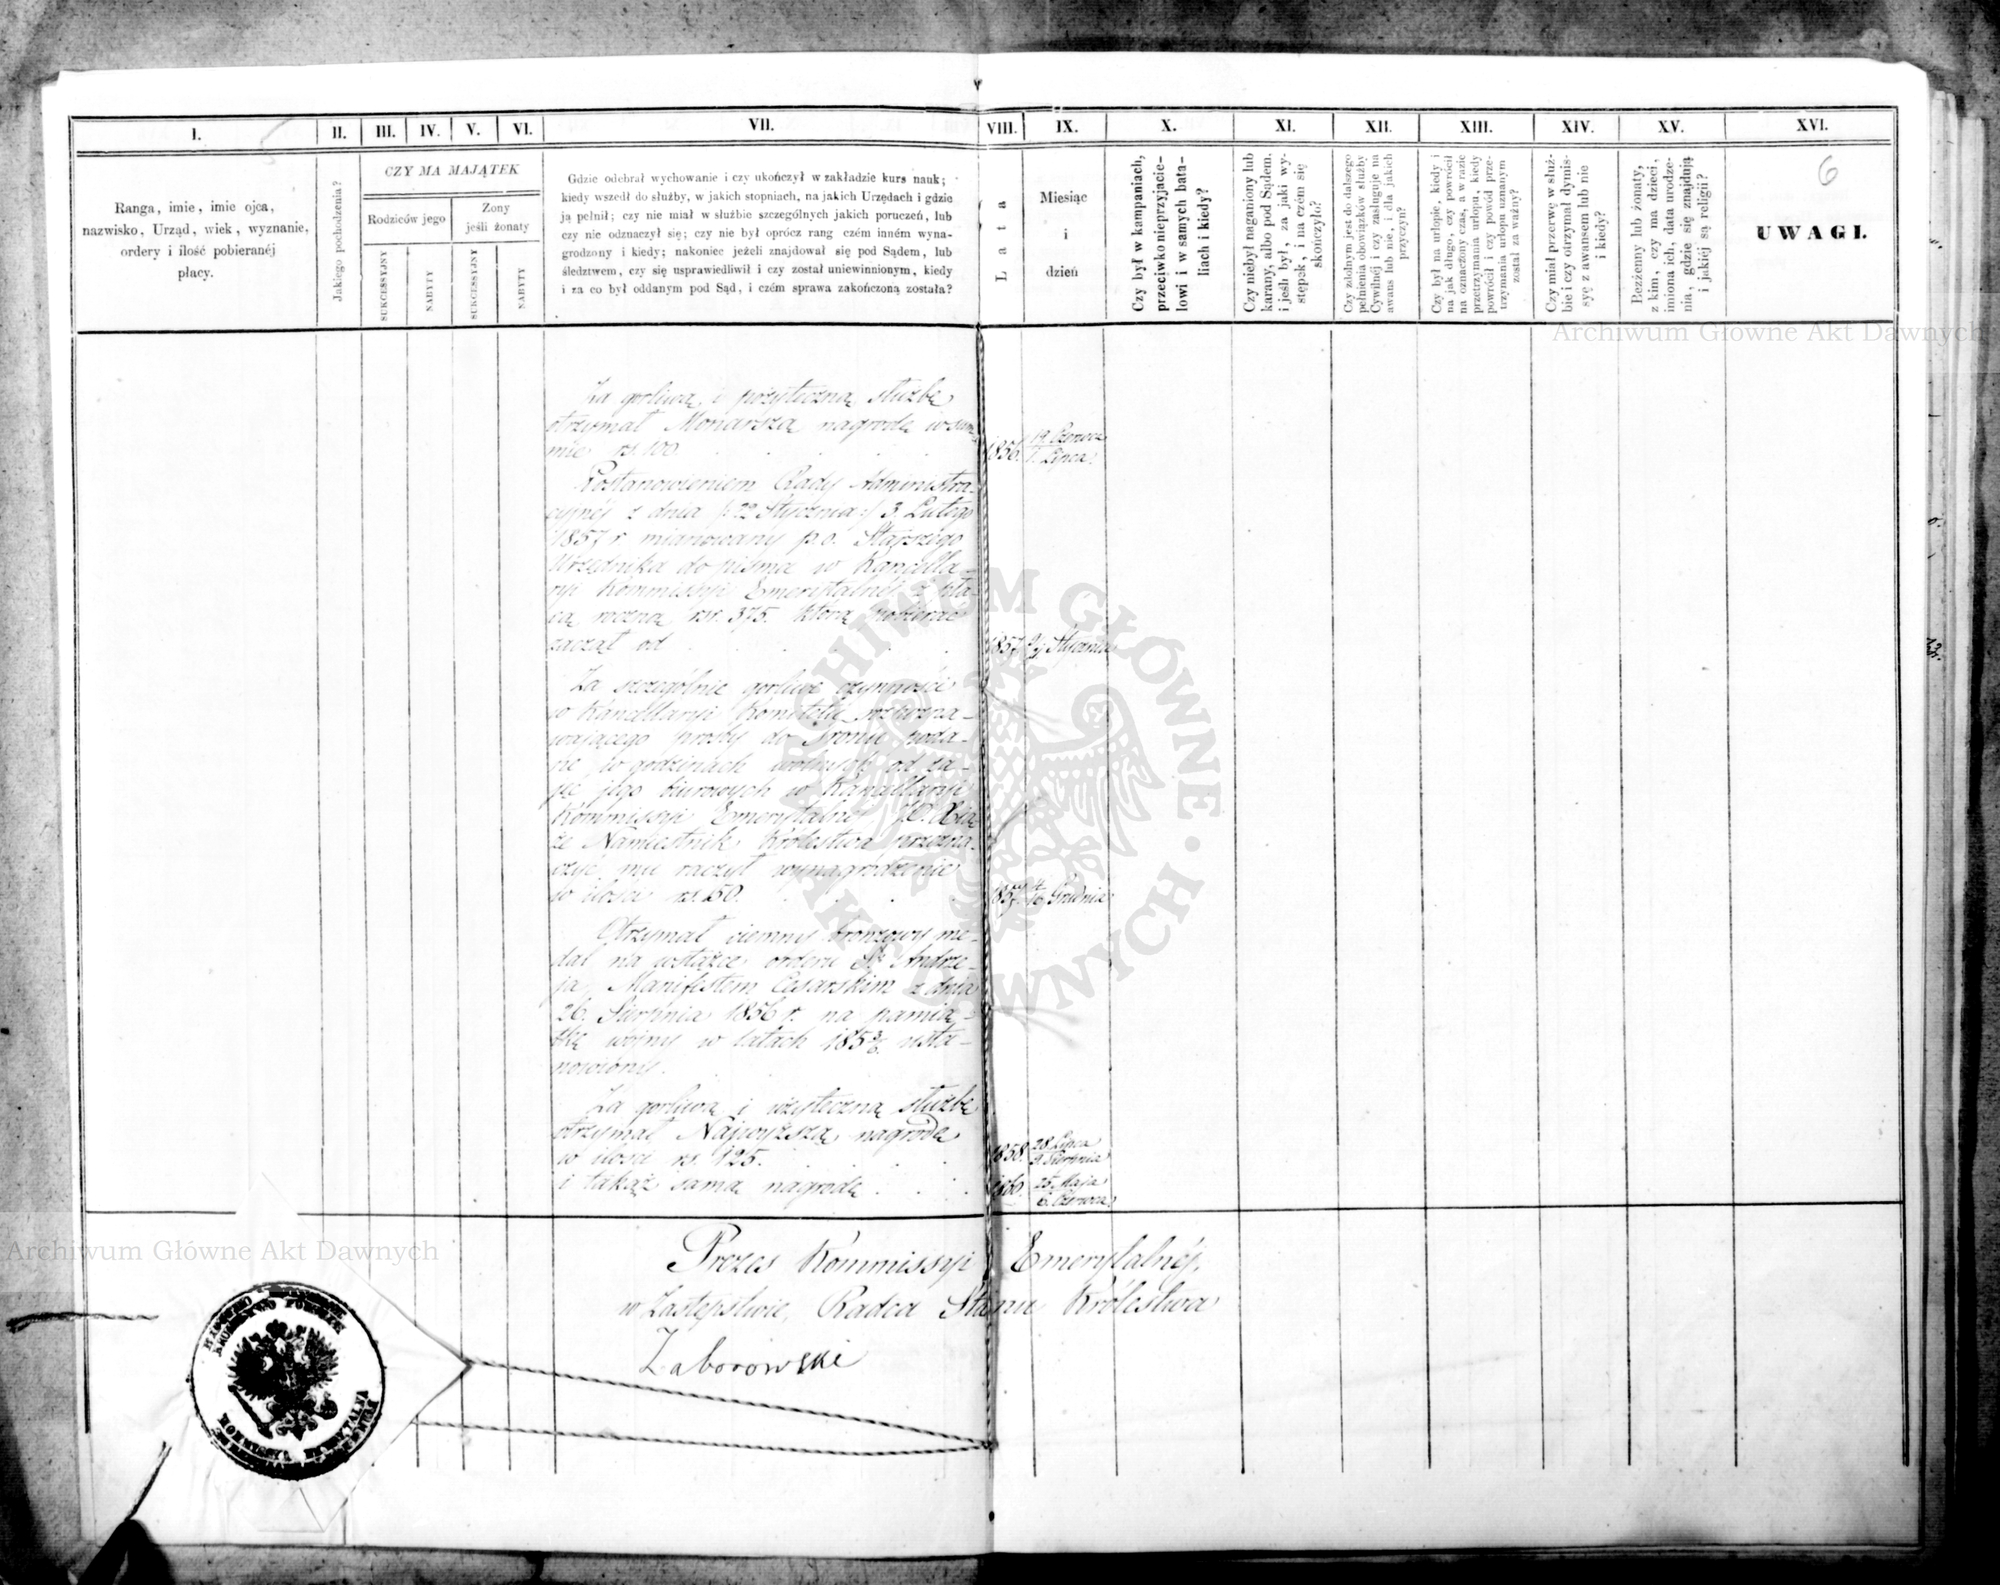 I.
II.
III.
IV.
V.
VI.
VII.
VIII.
IX.
X.
XI.
XII.
XIII.
XIV.
XV.
XVI.
6
Ranga, imie, imie ojca,
nazwisko, Urząd, wiek, wyznanie,
ordery i ilość pobieranéj
płacy.
Jakiego pochodzenia?
CZY MA MAJĄTEK
Rodziców jego
Żony
jeśli żonaty
SUKCESSYJNY
NABYTY
SUKCESSYJNY
NABYTY
Gdzie odebrał wychowanie i czy ukończył w zakładzie kurs nauk;
kiedy wszedł do służby, w jakich stopniach, na jakich Urzędach i gdzie
ją pełnił; czy nie miał w służbie szczególnych jakich poruczeń, lub
czy nie odznaczył się; czy nie był oprócz rang czém inném wyna-
grodzony i kiedy; nakoniec jeżeli znajdował się pod Sądem, lub
śledztwem, czy się usprawiedliwił i czy został uniewinnionym, kiedy
i za co był oddanym pod Sąd, i czém sprawa zakończoną została?
Lata
Miesiąc
i
dzień
Czy był w kampaniach,
przeciwko nieprzyjacie-
lowi i w samych bata-
liach i kiedy?
Czy niebył naganiony lub
karany, albo pod Sądem.
i jeśli był, za jaki wy-
stępek, i na czém się
skończyło?
Czy zdolnym jest do dalszego
pełnienia obowiązków służby
Cywilnéj i czy zasługuje na
awans lub nie, i dla jakich
przyczyn?
Czy był na urlopie, kiedy i
na jak długo, czy powrócił
na oznaczony czas, a w razie
przetrzymania urlopu, kiedy
powrócił i czy powód prze-
trzymania urlopu uznanym
został za ważny?
Czy miał przerwę w służ-
bie i czy otrzymał dymis-
syę z awansem lub nie
i kiedy?
Bezżenny lub żonaty,
z kim, czy ma dzieci,
imiona ich, data urodze-
nia, gdzie się znajdują
i jakiéj są religii?
UWAGI.
Archiwum Główne Akt Dawnych
Za gorliwą i pożyteczną służbę
otrzymał Monarszą nagrodę w sum-
mie rs. 100.
1856. 19. Czerwca
1. Lipca.
Postanowieniem Rady Administra-
cyjnéj z dnia /:22 Stycznia:/ 3 Lutego
1857 r. mianowany p.o. Starszego
Urzędnika do pisma w Kancella-
ryi Kommissyi Emerytalnéj z pła-
cą roczną rsr. 375. którą pobierać
zaczął od
1857. Stycznia
Za szczególnie gorliwe czynności
w Kancellaryi Komitetu rozpozna-
wającego prośby do Tronu poda-
ne w godzinach wolnych od za-
jęć jego biurowych w Kancellaryi
Kommissyi Emerytalnéj J.O. Xią-
że Namiestnik Królestwa przezna-
czyć mu raczył wynagrodzenie
w ilości rs. 150.
1857. 4/16 Grudnia
Otrzymał ciemny bronzowy me-
dal na wstążce orderu Sgo Andrze-
ja, Manifestem Cesarskim z dnia
26. Sierpnia 1856 r. na pamią-
tkę wojny w latach 1853/6 usta-
nowiony.
Za gorliwą i użyteczną służbę
otrzymał Najwyższą nagrodę
w ilości rs. 125.
1858. 28 Lipca
9. Sierpnia
i takąż samą nagrodę
1860. 25. Maja
6. Czerwca
Prezes Kommissyi Emerytalnéj,
w Zastępstwie, Radca Stanu Królestwa
Zaborowski
Archiwum Główne Akt Dawnych
ARCHIWUM GŁÓWNE AKT DAWNYCH